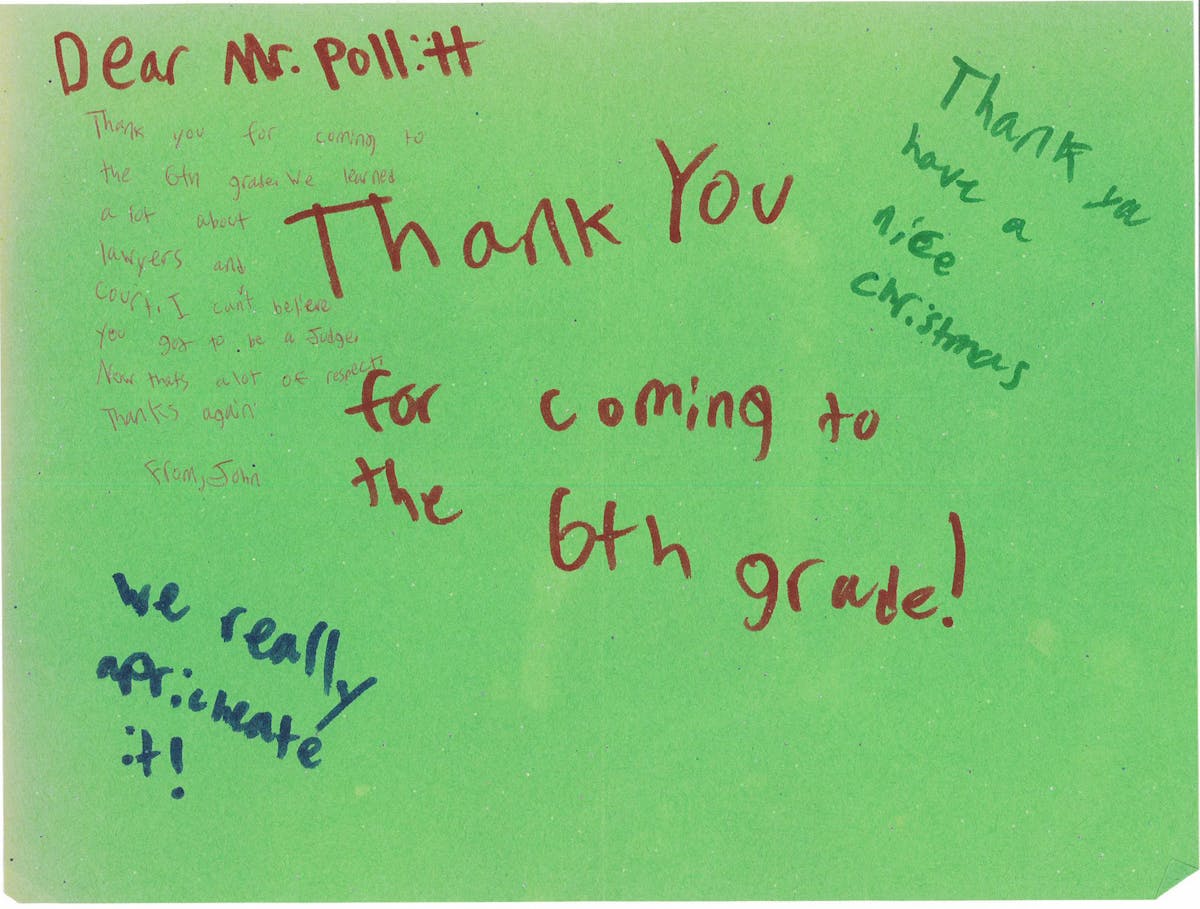 Dear Mr. Pollitt
Thank you for coming to
the 6th grade. We learned
a lot about
lawyers and
court. I can't believe
you got to be a Judge.
Now thats alot of respect!
Thanks again!
From, John
Thank You
for coming to
the 6th grade!
Thank ya
have a
nice
christmas
we really
apricheate
it!